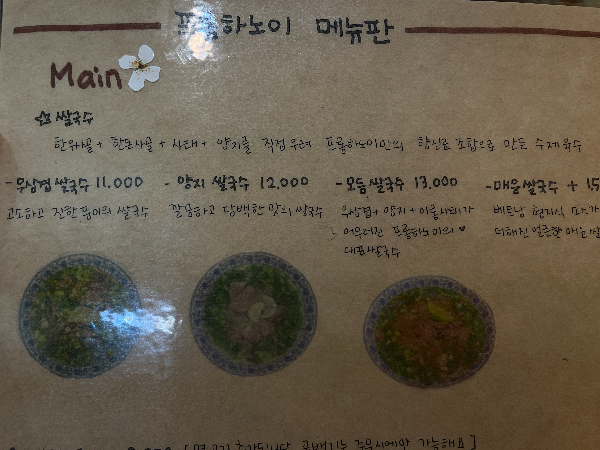 프롬하노이 메뉴판
Main
☆ 쌀국수
한우사골 + 한돈사골 + 사태 + 양지를 직접 우려 프롬하노이만의 향신료 조합으로 만든 수제 육수
- 우삼겹 쌀국수 11.000
- 양지 쌀국수 12.000
- 모듬 쌀국수 13.000
- 매운 쌀국수 + 1.5
고소하고 진한 풍미의 쌀국수
깔끔하고 담백한 맛의 쌀국수
우삼겹 + 양지 + 아롱사태가
어우러진 프롬하노이의 ♥
대표쌀국수
베트남 현지식
더해진 얼큰한 매운 쌀
추가됩니다 곱빼기는 주문시에만 가능해요 ]